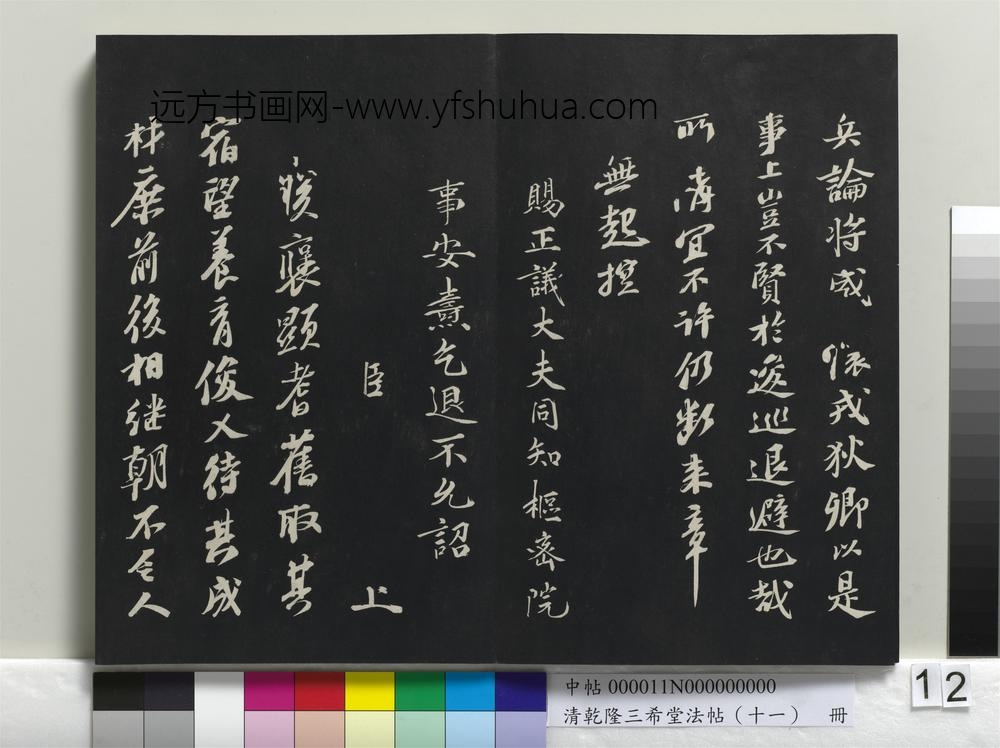 远方书画网-www.yfshuhua.com
兵論將成 懷戎狄卿以是
事上豈不賢於逡巡退避也哉
所請宜不許仍斷来章
無起
賜正議大夫同知樞密院
事安燾乞退不允詔
臣 上
襃顯耆舊取其
宿望養育俊乂待其成
材庶前後相繼朝不乏人
中帖 000011N000000000
清乾隆三希堂法帖（十一） 冊
12